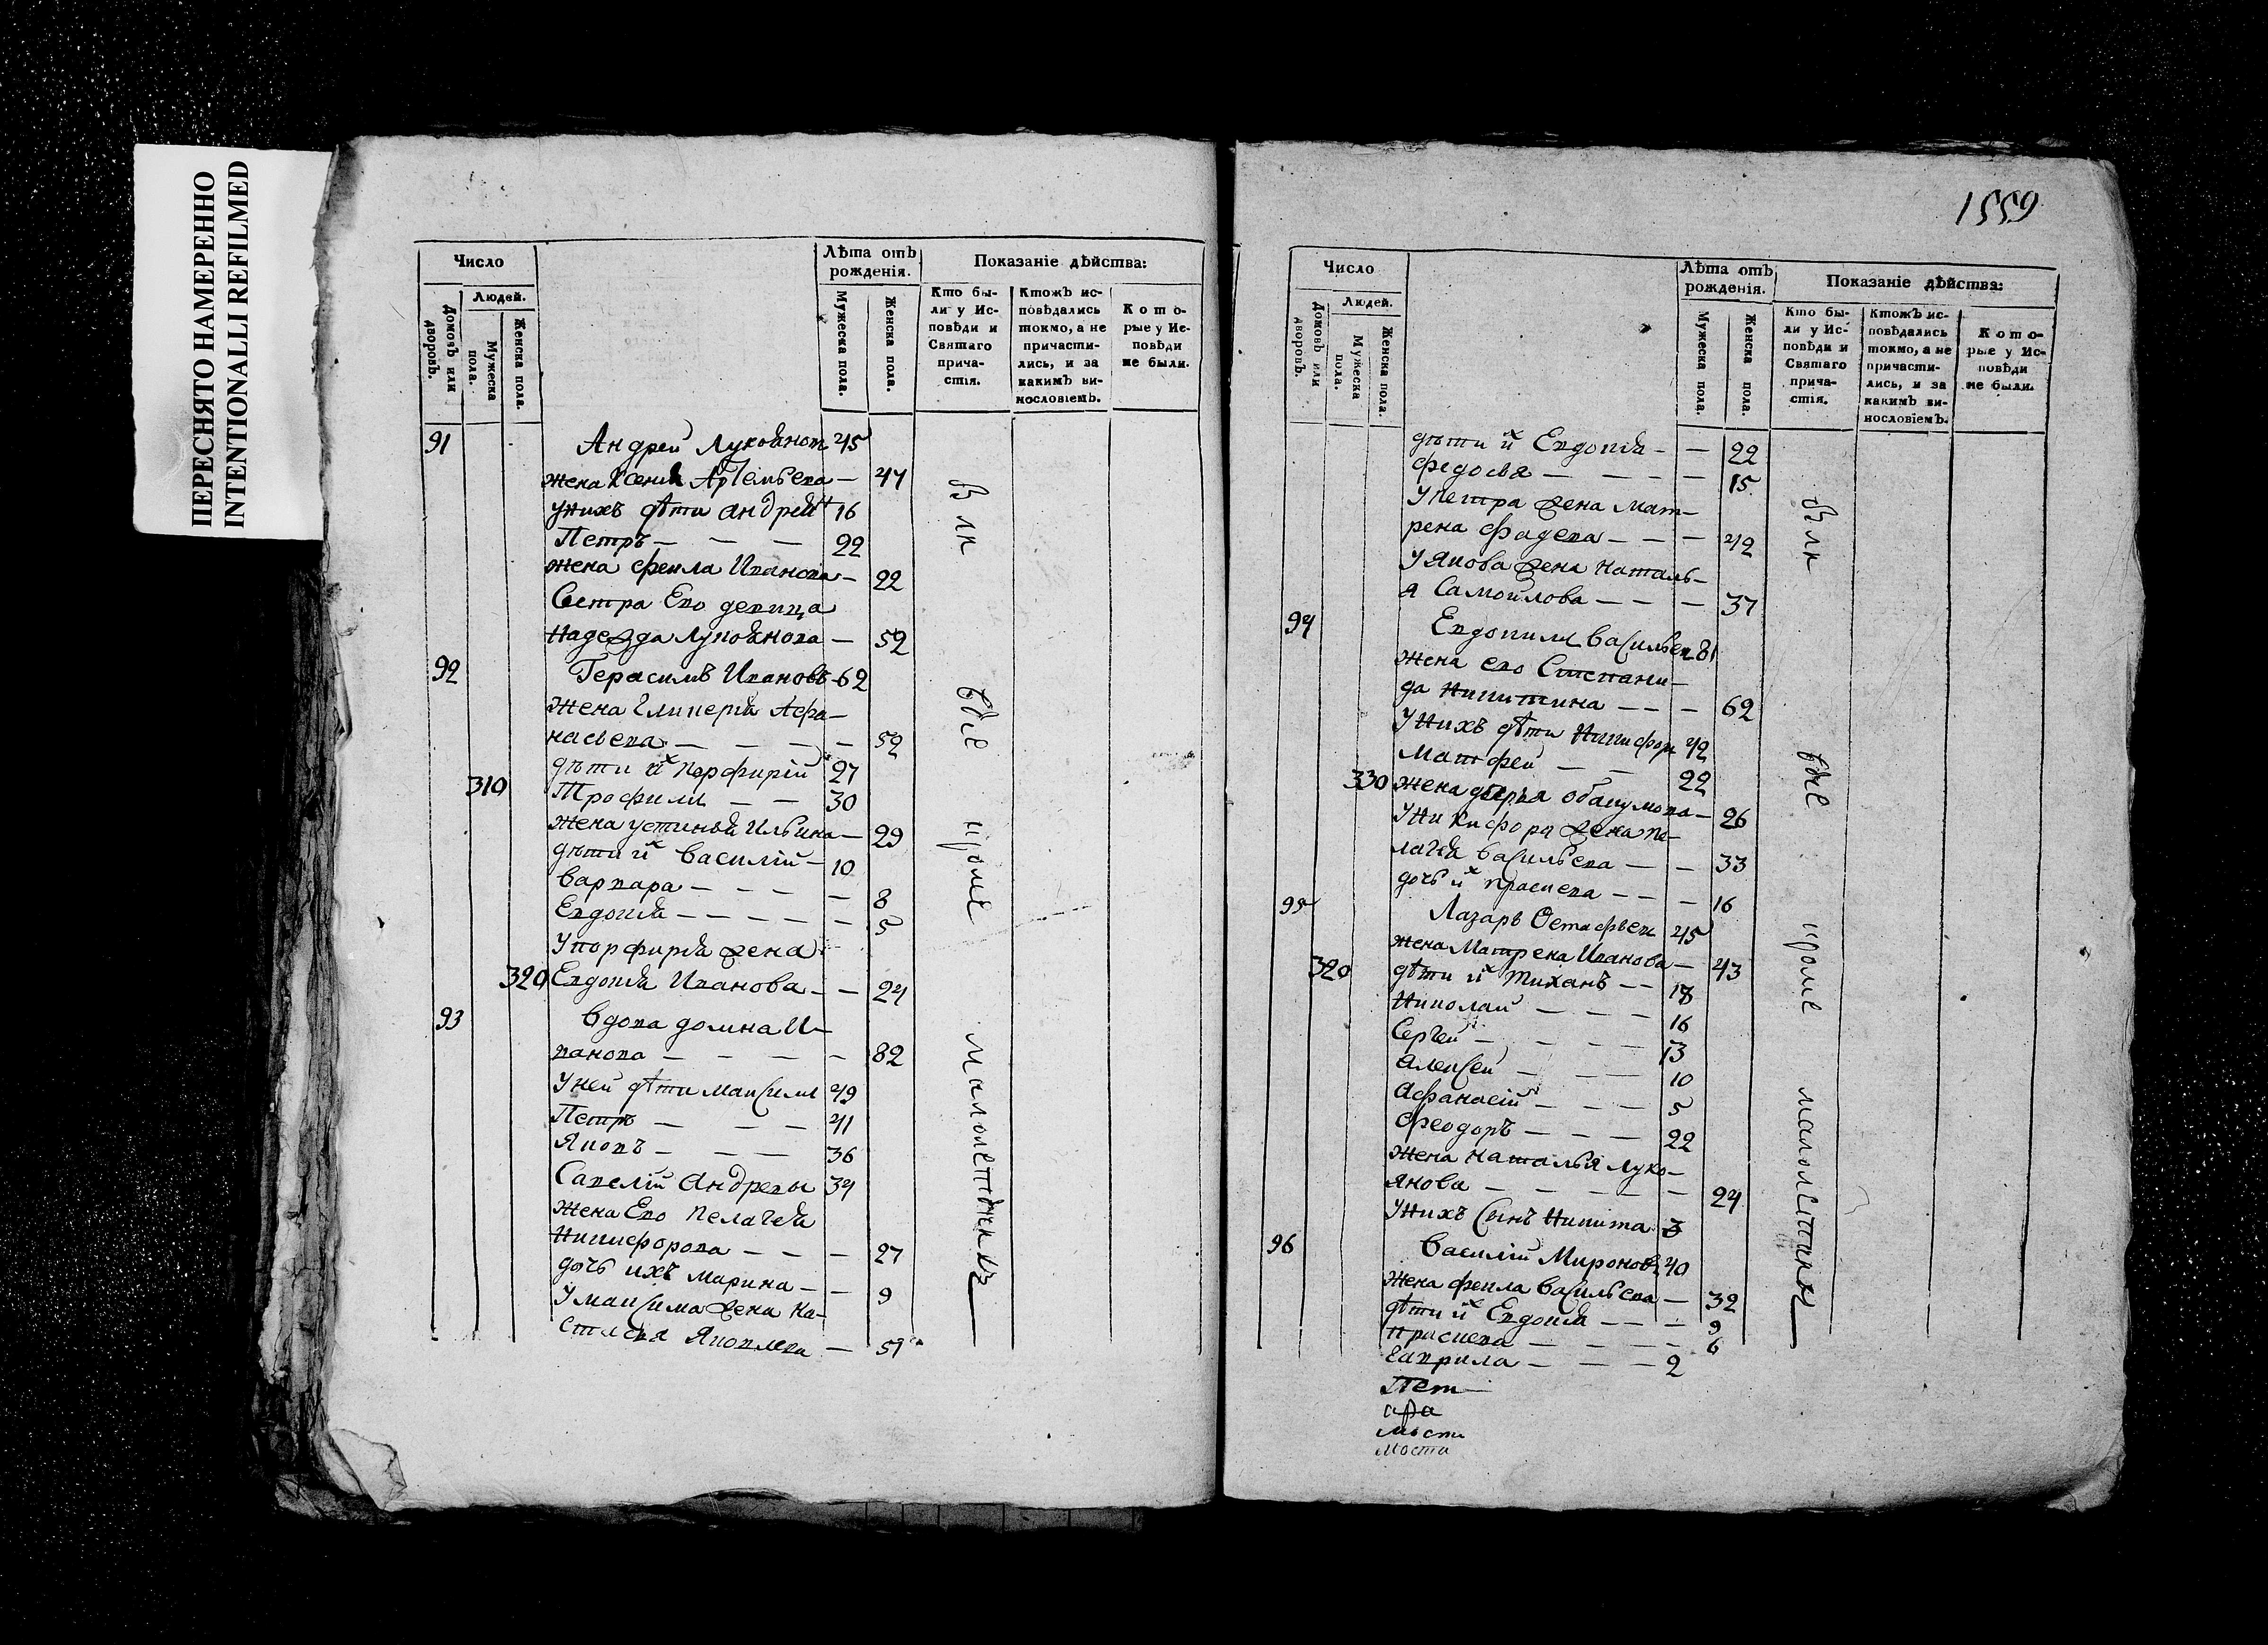 ПЕРЕСНЯТО НАМЕРЕННО
INTENTIONALLI REFILMED
Число
Лѣта отъ рожденія.
Показаніе дѣйства:
Домовъ или дворовъ.
Людей.
Мужеска пола.
Женска пола.
Мужеска пола.
Женска пола.
Кто были у Исповѣди и Святаго причастія.
Ктожъ исповѣдались токмо, а не причастились, и за какимъ винословіемъ.
Которые у Исповѣди не были.
91 Андрей Лукоянов 45
жена Ксения Артемьева — 47
у нихъ дѣти Андрей 16
Петръ — — — 22
жена Фекла Иванова — 22
Сестра Ево девица
Надежда Лукоянова — 52
92 Герасимъ Ивановъ 62
жена Гликерія Афа-
насьева — — — — 52
дѣти их Порфирій 27
310 Трофим — — 30
жена устинья Ильина — 29
дѣти их Василій — 10
Варвара — — — — 8
Евдокія — — — — — 5
У порфирія жена
320 Евдокія Иванова — — 24
93 Вдова домна И-
ванова — — — — 82
У ней дѣти Максим 49
Петръ — — — 41
Яковъ — — — 36
Савелій Андреевы 34
жена Ево Пелагея
Никифорова — — — 27
дочь ихъ марина — — 9
У максима жена На-
стасья Яковлева — 51
Вли
Все
кроме
малолетных
1559
Число
Лѣта отъ рожденія.
Показаніе дѣйства:
Домовъ или дворовъ.
Людей.
Мужеска пола.
Женска пола.
Мужеска пола.
Женска пола.
Кто были у Исповѣди и Святаго причастія.
Ктожъ исповѣдались токмо, а не причастились, и за какимъ винословіемъ.
Которые у Исповѣди не были.
дѣти их Евдокія — — 22
федосья — — — — 15
У петра жена Мат-
рена Фадева — — — 42
У Якова жена Наталь-
я Самойлова — — — 37
94 Евдоким Васильев 81
жена ево Степани-
да Никитина — — — 62
У нихъ дѣти Никифор 42
Матфей — — 22
330 жена дарья — 26
У Никифора жена пе-
лагея Васильева — — 33
дочь их праскева — — — 16
95 Лазарь Остафьев 45
жена Матрена Иванова — 43
320 дѣти их Тиханъ — — 18
Николай — — — 16
Сергей — — — — 13
Алексей — — — 10
Афанасій — — — 5
Феодоръ — — — 22
жена Наталья Луко-
янова — — — — — 24
У нихъ сынъ Никита 3
96 Василій Миронов 40
жена фекла Васильева — 32
дѣти их Евдокія — — — 9
праскева — — — — 6
Гаврила — — — 2
Пет
Вли
все
кроме
малолетных